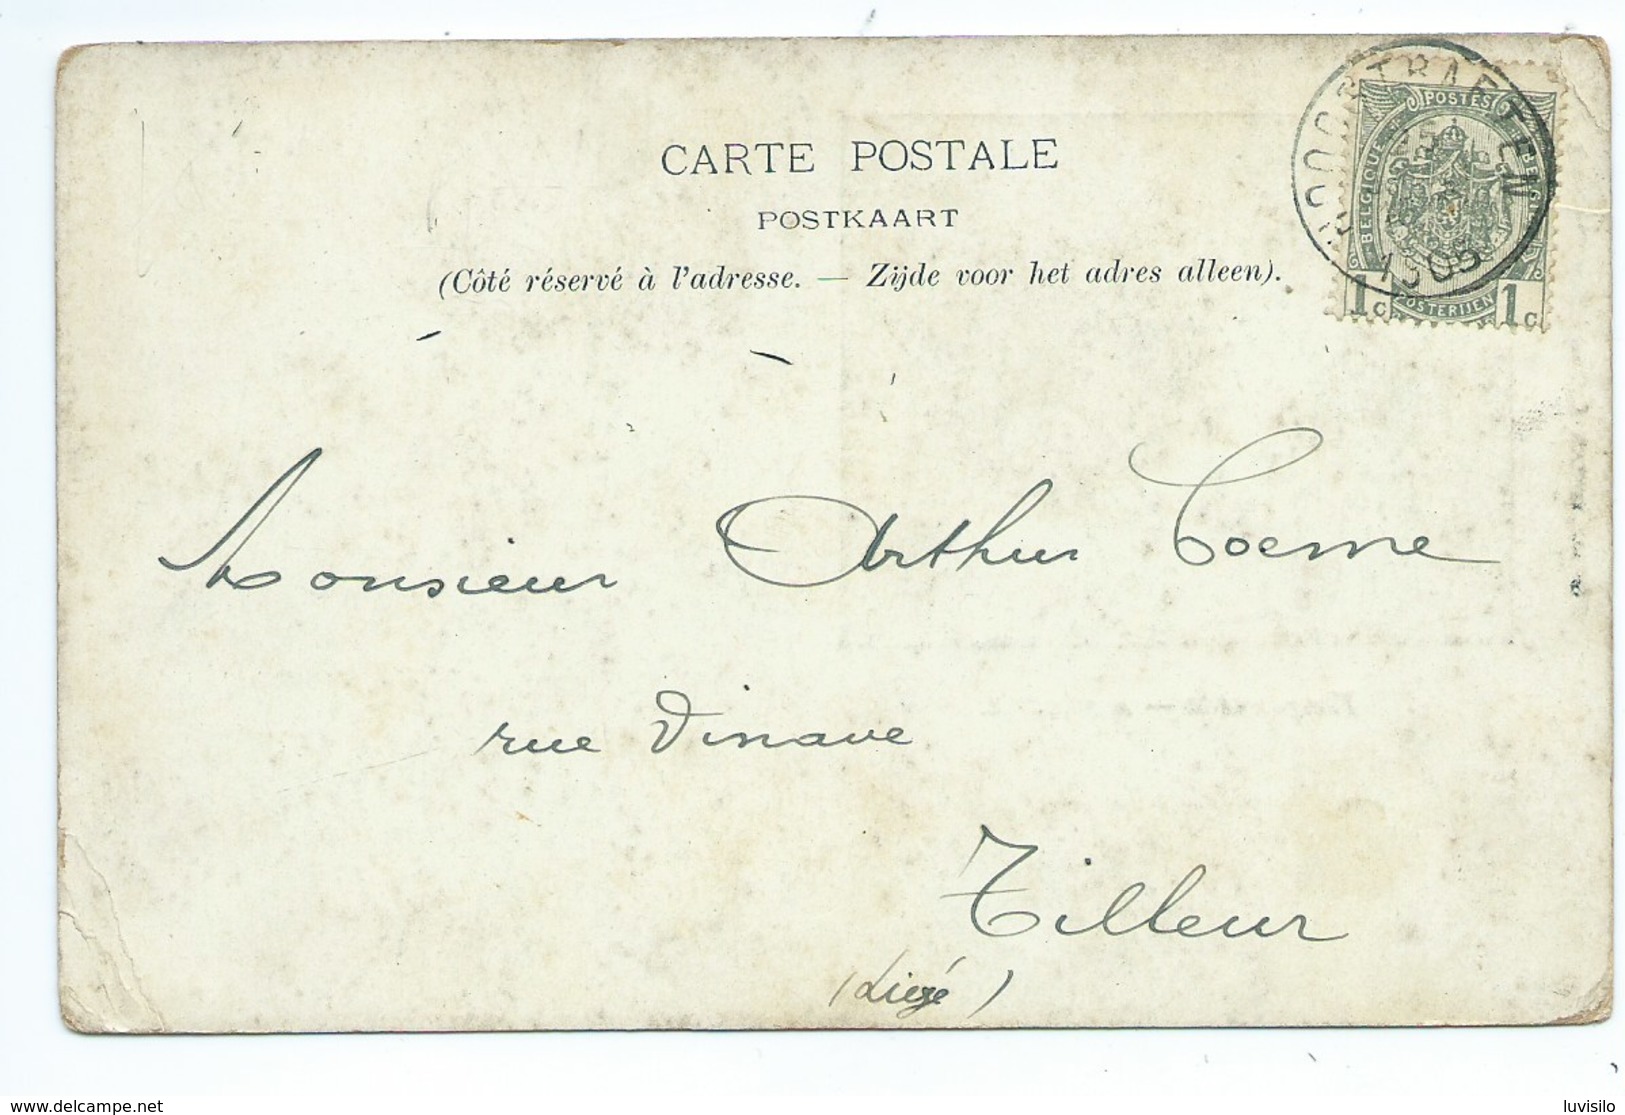 CARTE POSTALE
POSTKAART
(Côté réservé à l'adresse. — Zijde voor het adres alleen).
POSTES
BELGIQUE
BELGIË
1c POSTERIJEN 1c
HOOGSTRAETEN
1905
Monsieur Arthur Coeme
rue Vinave
Tilleur
(Liége)
www.delcampe.net
luvisilo